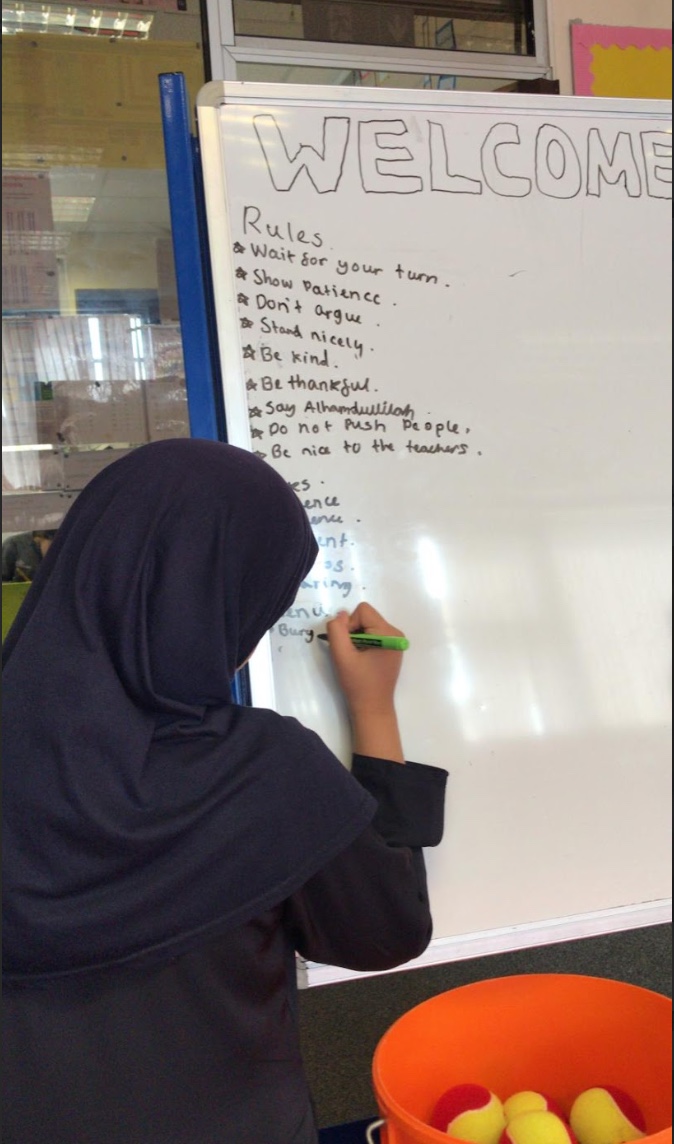 WELCOME
Rules.
Wait for your turn.
Show Patience.
Don't argue.
Stand nicely.
Be kind.
Be thankful.
Say Alhamdullilah.
Do not Push People.
Be nice to the teachers.
Burg